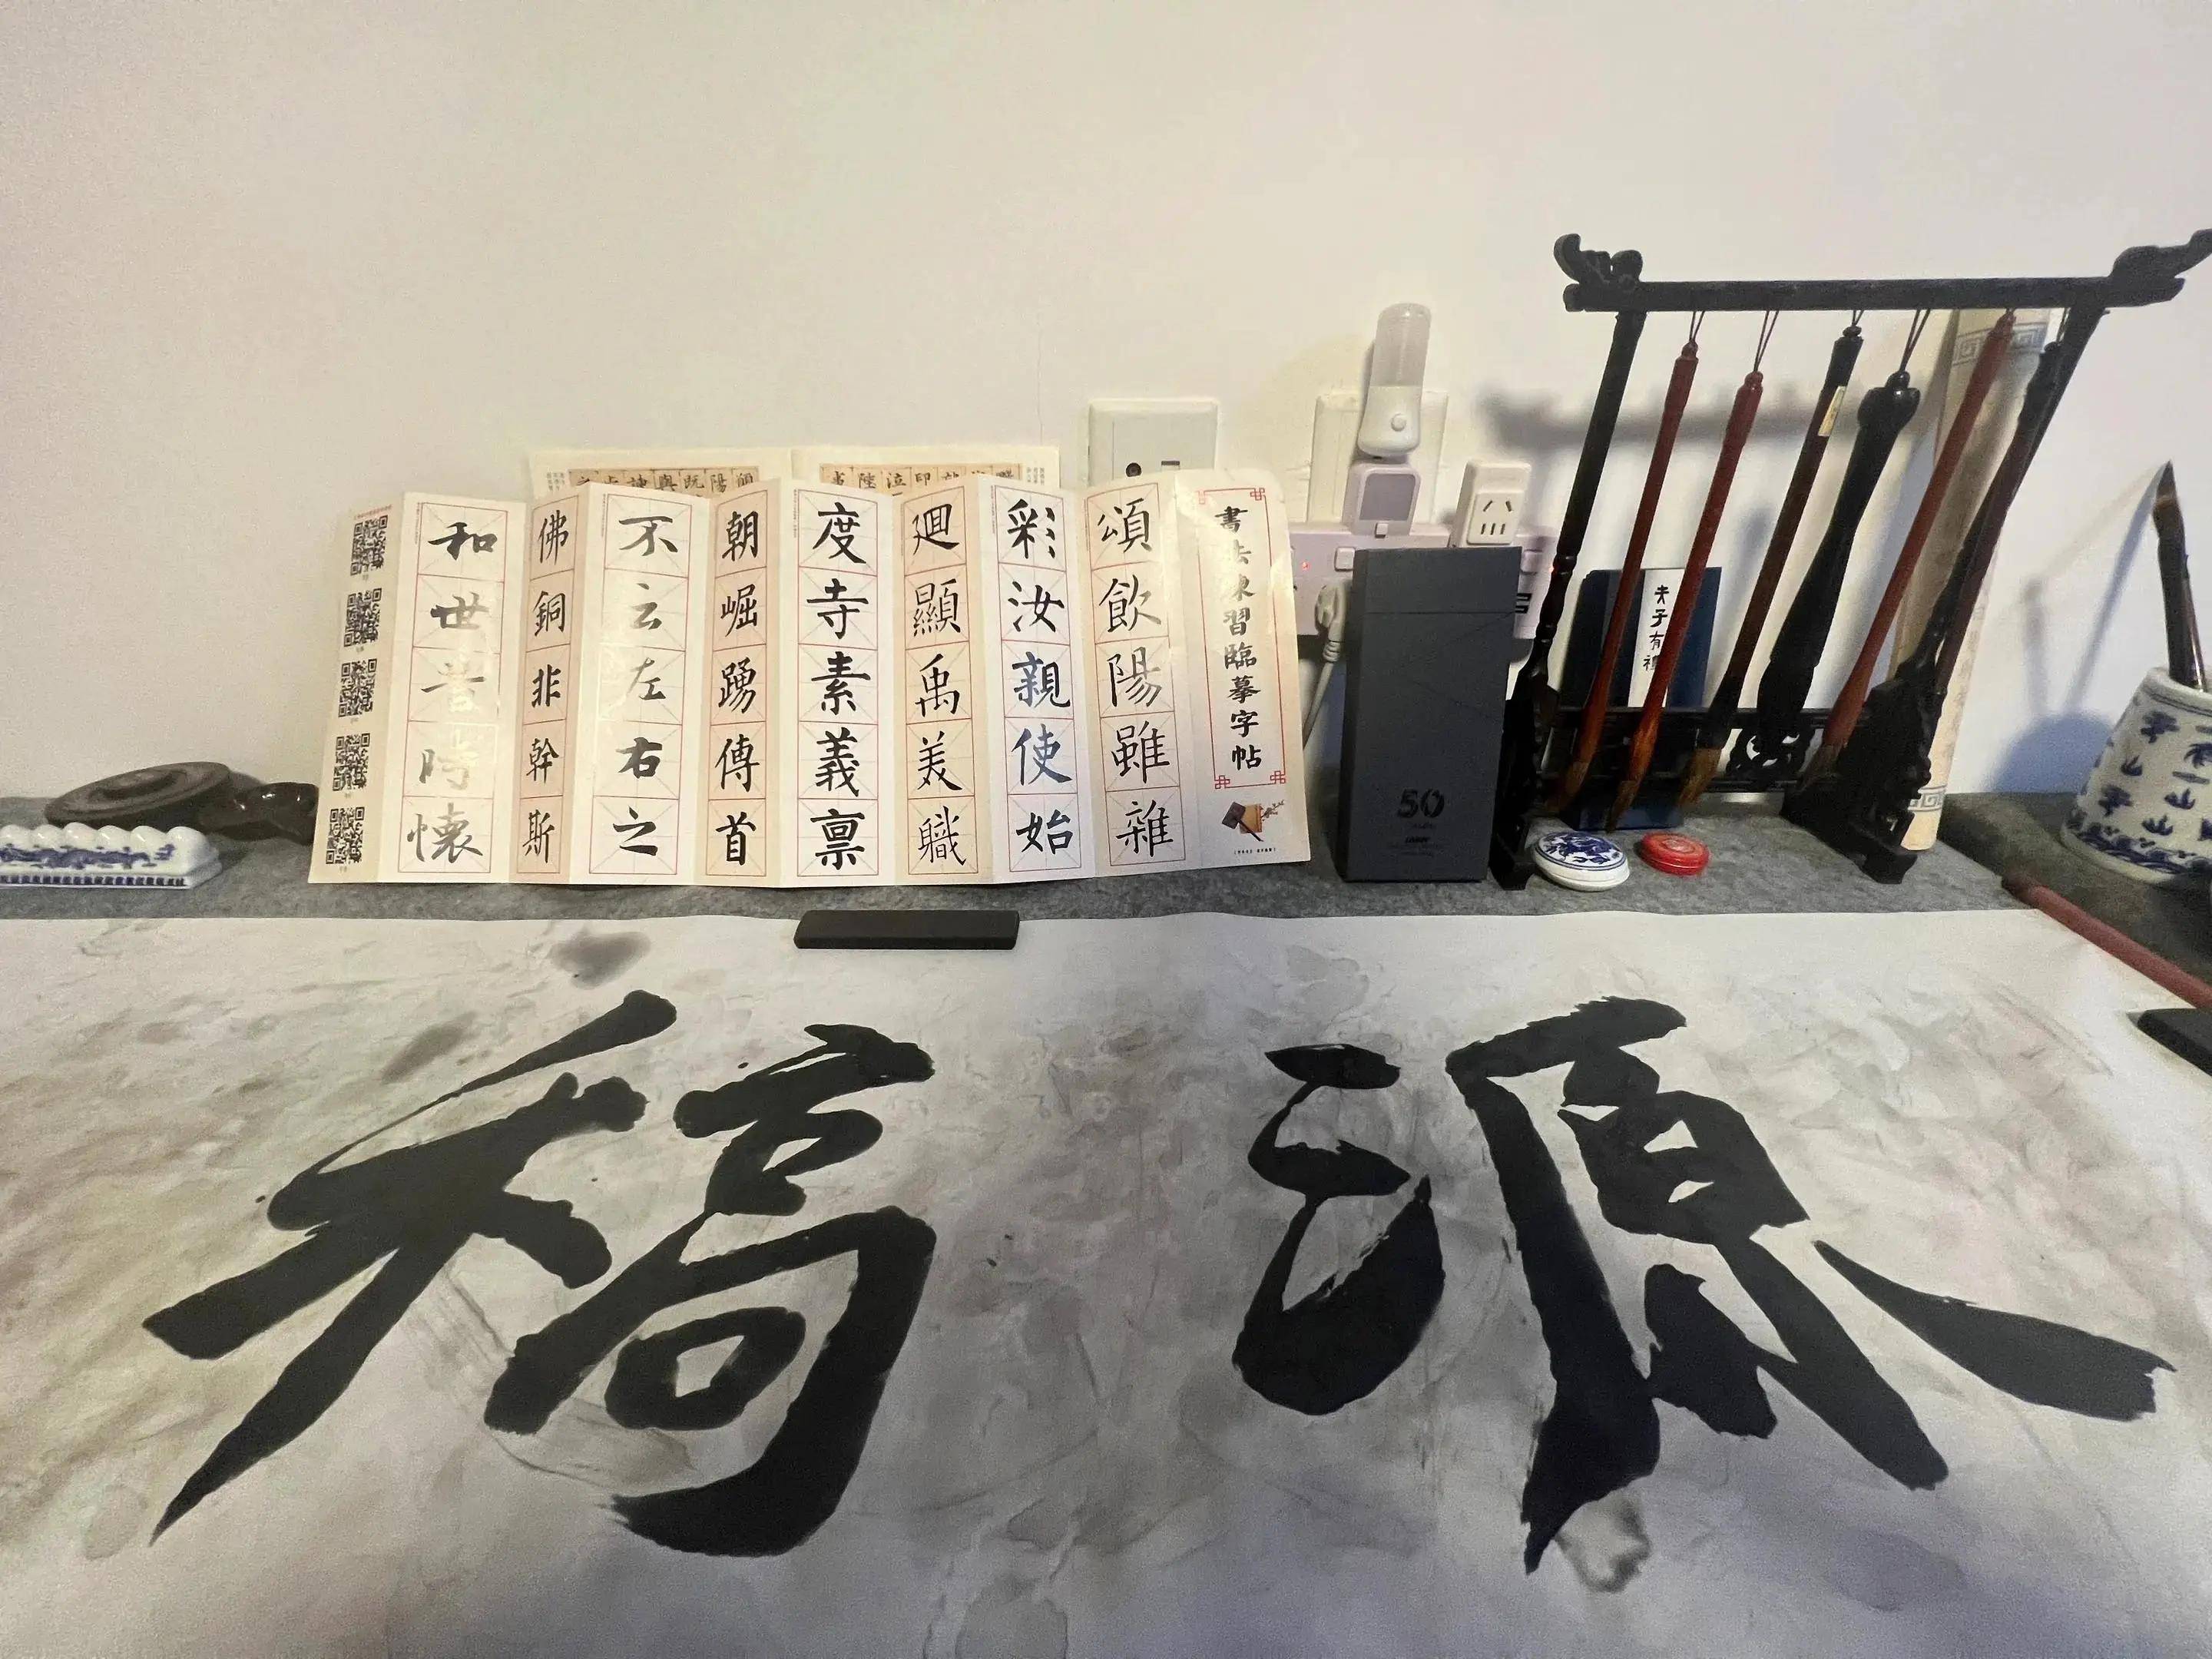 書法練習臨摹字帖
頌飲陽雖雜
彩汝親使始
廻顯禹美職
度寺素義禀
朝崛踴傳首
不云左右之
佛銅非幹斯
和世昔時懷
50
夫子有禮
源稿